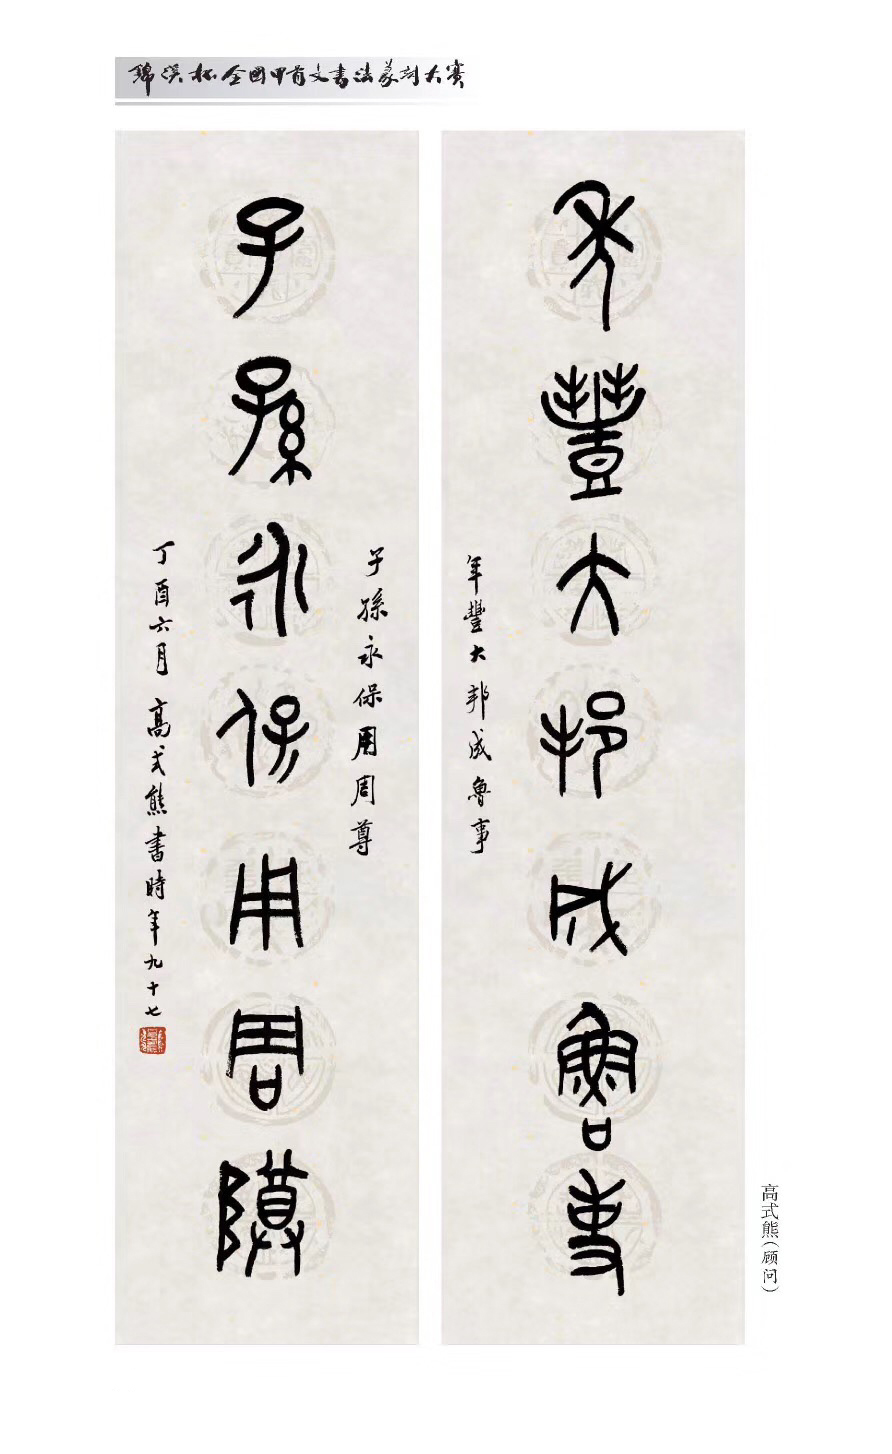 錦溪杯全国甲骨文書法篆刻大賽
年豐大邦成魯事
年豐大邦成魯事
子孫永保用周尊
子孫永保用周尊
丁酉六月 高式熊書時年九十七
高式熊(顾问)